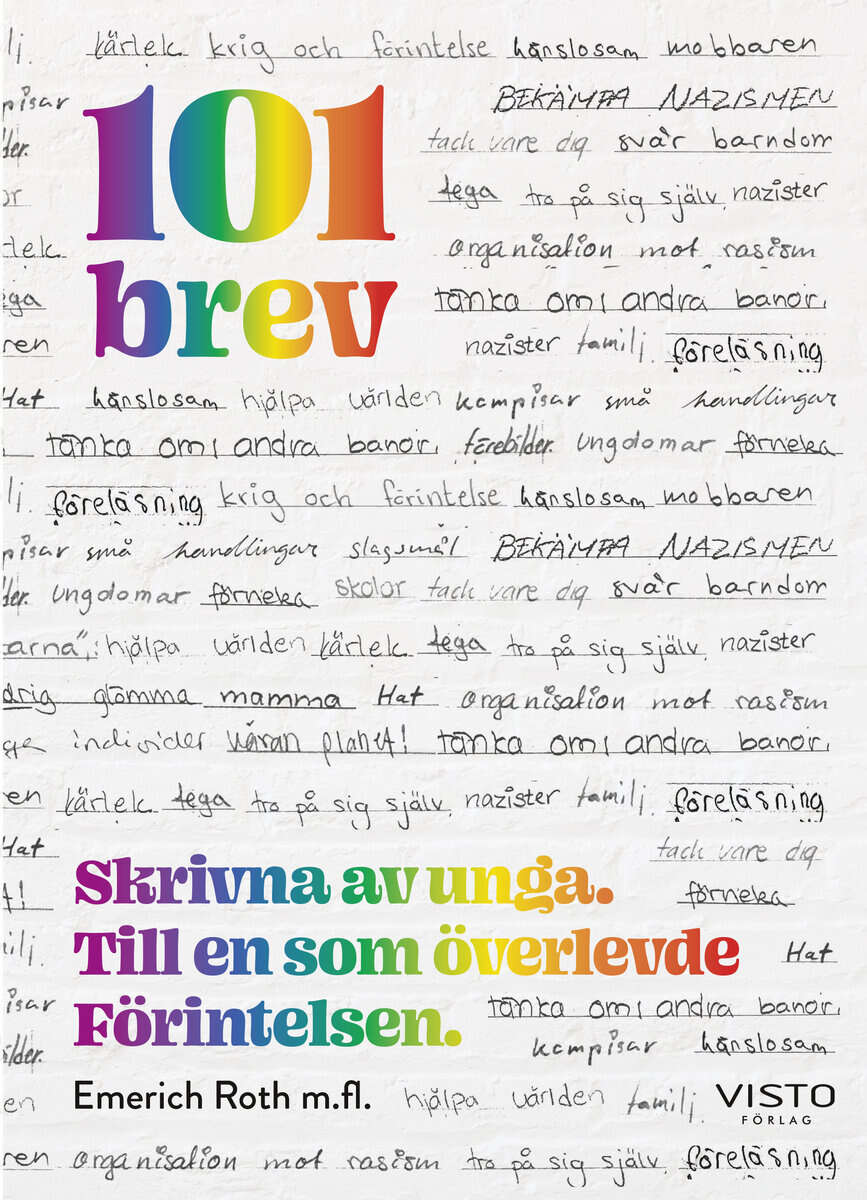 lj. kärlek krig och förintelse hänslosam mobbaren
101
pisar BEKÄMPA NAZISMEN
der. tack vare dig svår barndom
or tega tro på sig själv nazister
ärlek organisation mot rasism
brev
ega tänka om andra banor.
ren nazister familj. föreläsning
Hat hänslosam hjälpa världen kompisar små handlingar
tänka om andra banor. förebilder. ungdomar förneka
lj. föreläsning krig och förintelse hänslosam mobbaren
pisar små handlingar slagsmål BEKÄMPA NAZISMEN
der. ungdomar förneka skolor tack vare dig svår barndom
arna", hjälpa världen kärlek tega tro på sig själv nazister
drig glömma mamma Hat organisation mot rasism
individer våran planet! tänka om andra banor.
en kärlek tega tro på sig själv nazister familj. föreläsning
Hat tack vare dig
Skrivna av unga.
t! förneka
Till en som överlevde
ilj. Hat
Förintelsen.
isar tänka om andra banor.
bilder. kompisar hänslosam
en Emerich Roth m.fl. hjälpa världen familj. VISTO
FÖRLAG
ren organisation mot rasism tro på sig själv föreläsning